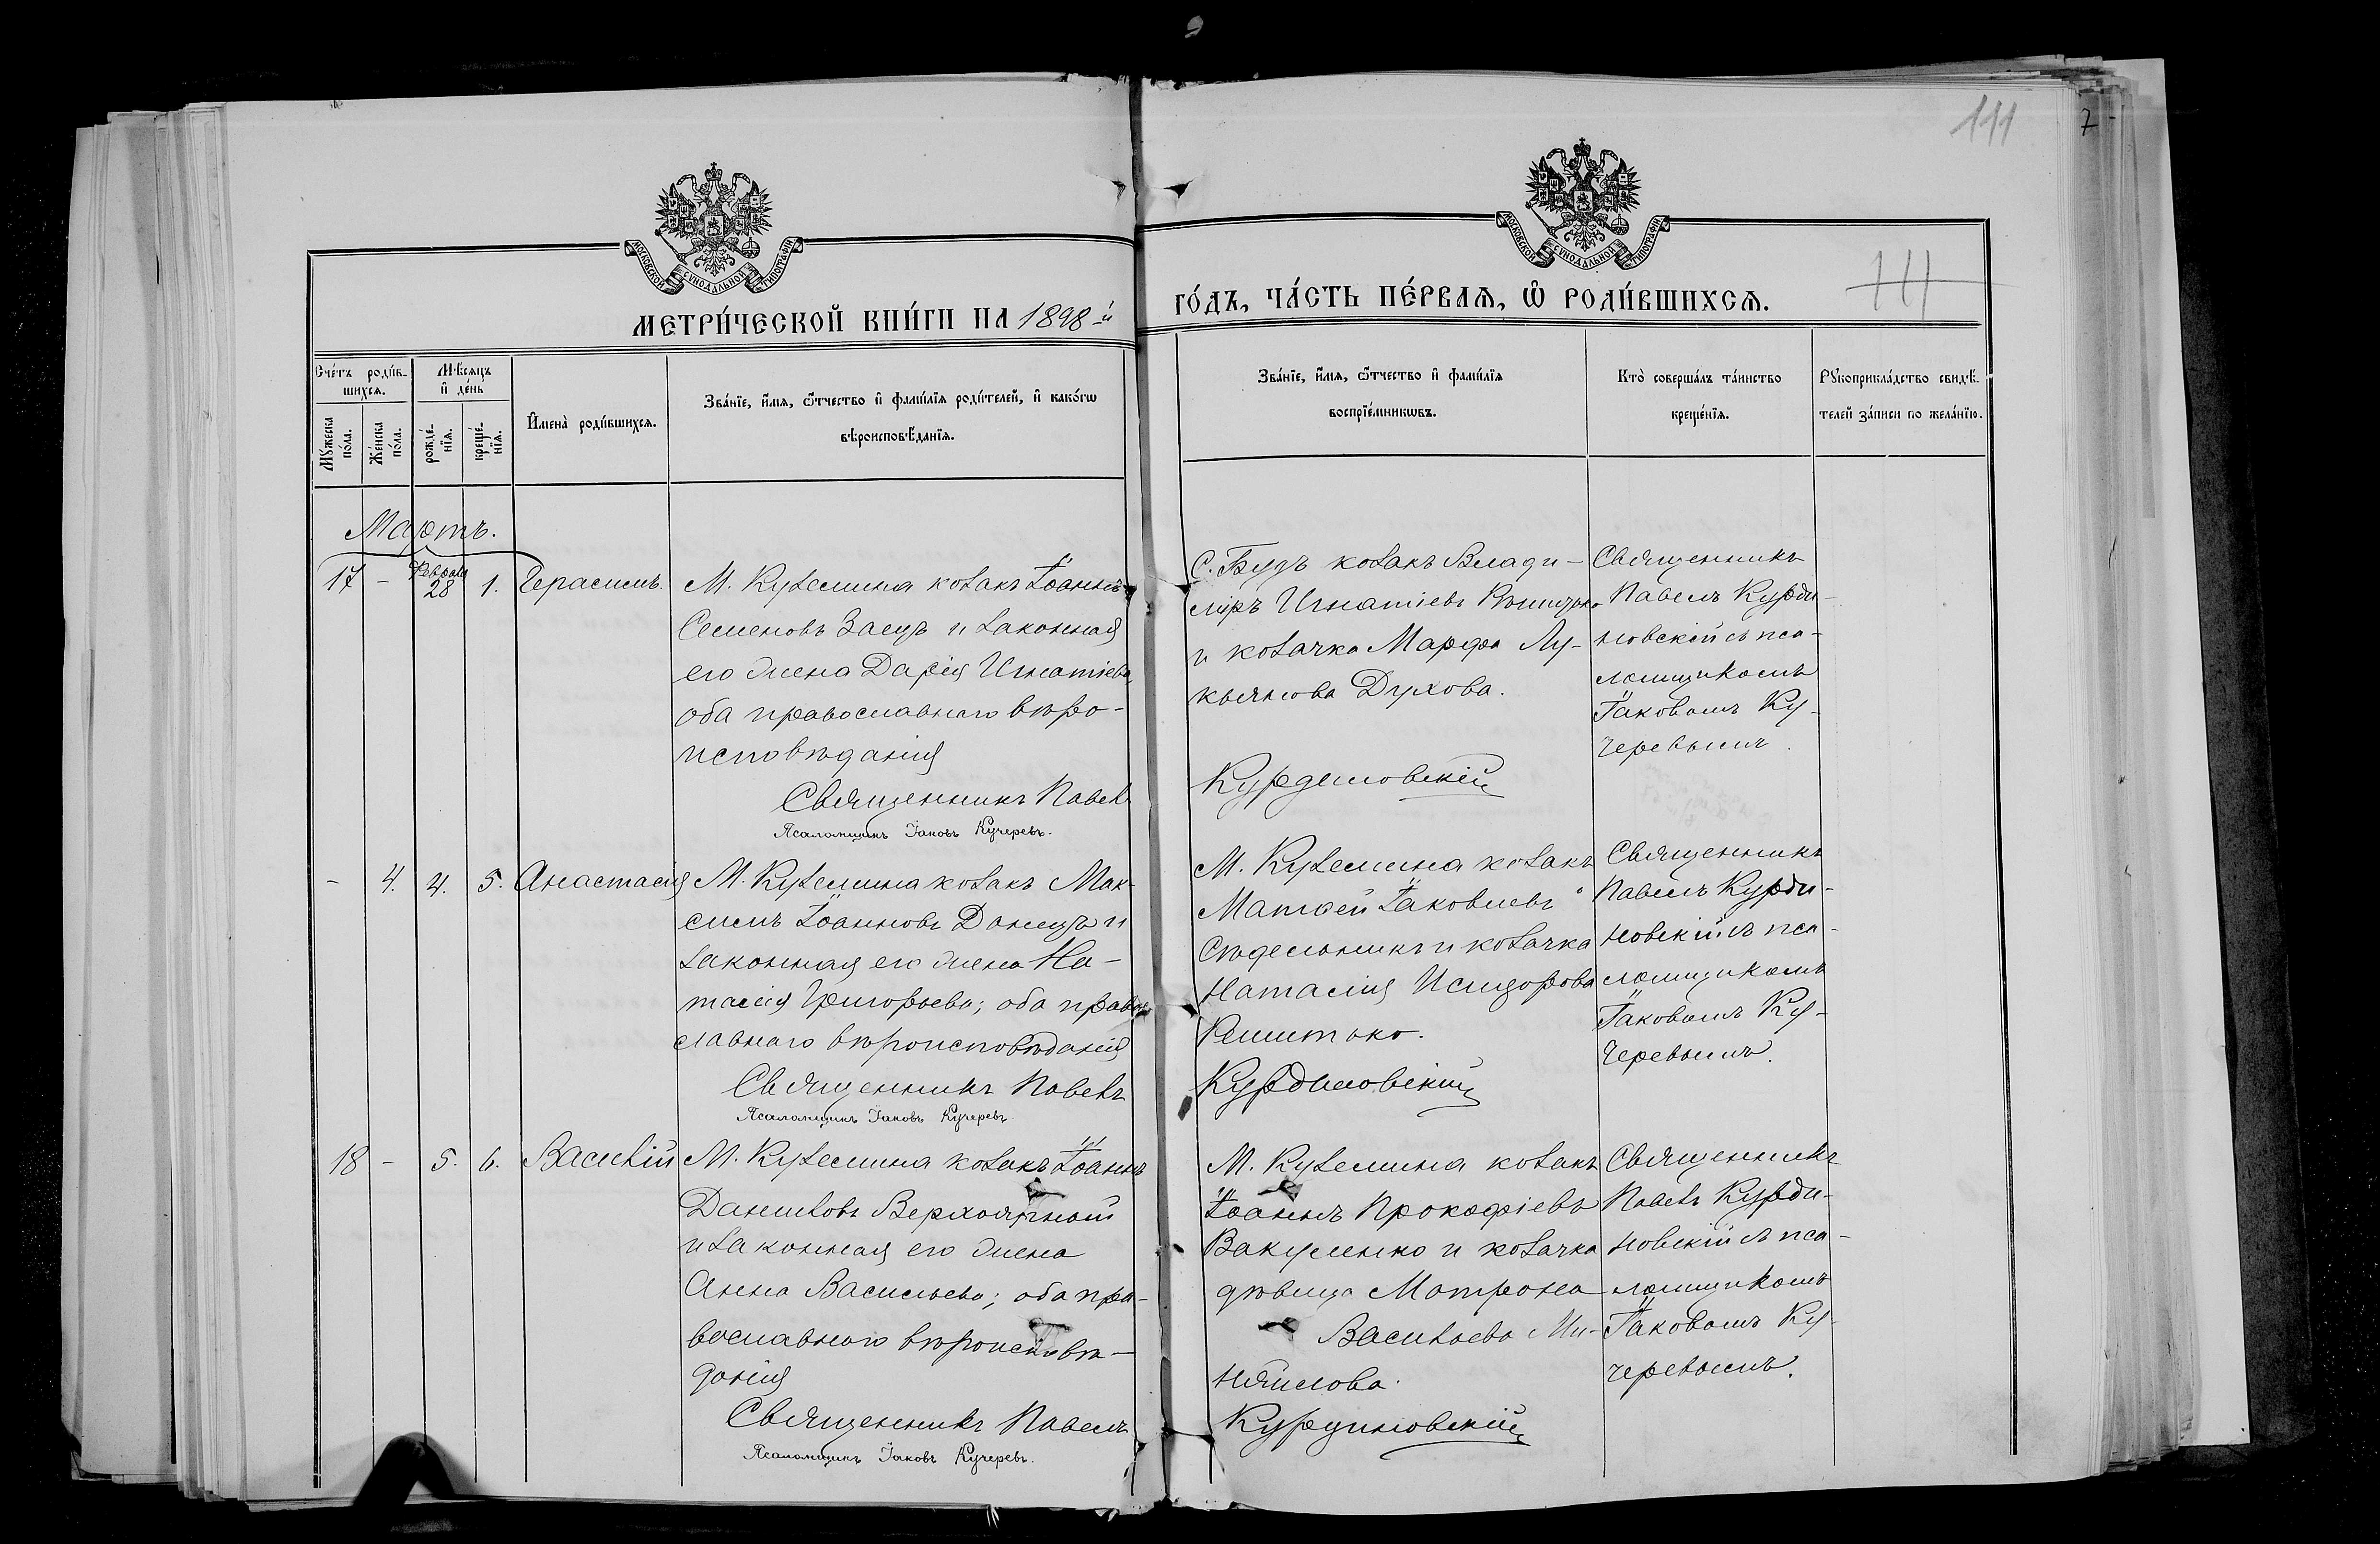 111
7
МОСКОВСКОЙ СѴНОДАЛЬНОЙ ТИПОГРАФІИ
МОСКОВСКОЙ СѴНОДАЛЬНОЙ ТИПОГРАФІИ
МЕТРИ́ЧЕСКОЙ КНИ́ГИ НА 1898-й
ГО́ДЪ, ЧА́СТЬ ПЕ́РВАѦ, Ѽ РОДИ́ВШИХСѦ.
111
Сче́тъ роди́в-
шихсѧ.
Мѣ́сѧцъ
и҆ де́нь
Мꙋжеска
по́ла.
Же́нска
по́ла.
рожде́-
нїѧ.
креще́-
нїѧ.
И҆мена̀ роди́вшихсѧ.
Зва́нїе, и҆́мѧ, ѻ҆́тчество и҆ фамі́лїѧ роди́телей, и҆ како́гѡ
вѣроисповѣ́данїѧ.
Зва́нїе, и҆́мѧ, ѻ҆́тчество и҆ фамі́лїѧ
воспрїе́мникѡвъ.
Кто̀ соверша́лъ та́инство
креще́нїѧ.
Рꙋкоприкла́дство свидѣ́-
телей за́писи по жела́нїю.
Мартъ.
17 - Февраля 28 1. Герасимъ.
М. Куземина козакъ Іоаннъ
Семеновъ Заецъ и законная
его жена Дарія Игнатіева,
оба православнаго вѣро-
исповѣданія
Священникъ Павелъ
Псаломщикъ Іаковъ Кучеревъ.
С. Будъ козакъ Влади-
міръ Игнатіевъ
и козачка Марфа Лу-
кьянова Духова.
Курдиновскій
Священникъ
Павелъ Курди-
новскій съ пса-
ломщикомъ
Іаковомъ Ку-
черевымъ.
- 4. 4. 5. Анастасія
М. Куземина козакъ Мак-
симъ Іоанновъ Донецъ и
законная его жена На-
талія Григорьева; оба право-
славнаго вѣроисповѣданія
Священникъ Павелъ
Псаломщикъ Іаковъ Кучеревъ
М. Куземина козакъ
Матѳей Іаковлевъ
Сѣдельникъ и козачка
Наталія Исидорова
Решитько.
Курдиновскій
Священникъ
Павелъ Курди-
новскій съ пса-
ломщикомъ
Іаковомъ Ку-
черевымъ.
18 - 5. 6. Василій
М. Куземина козакъ Іоаннъ
Даниловъ Верхоярный
и законная его жена
Анна Васильева; оба пра-
вославнаго вѣроисповѣ-
данія
Священникъ Павелъ
Псаломщикъ Іаковъ Кучеревъ.
М. Куземина козакъ
Іоаннъ Прокофіевъ
Вакуленко и козачка
дѣвица Матрона
Васильева Ми-
няйлова.
Курдиновскій
Священникъ
Павелъ Курди-
новскій съ пса-
ломщикомъ
Іаковомъ Ку-
черевымъ.